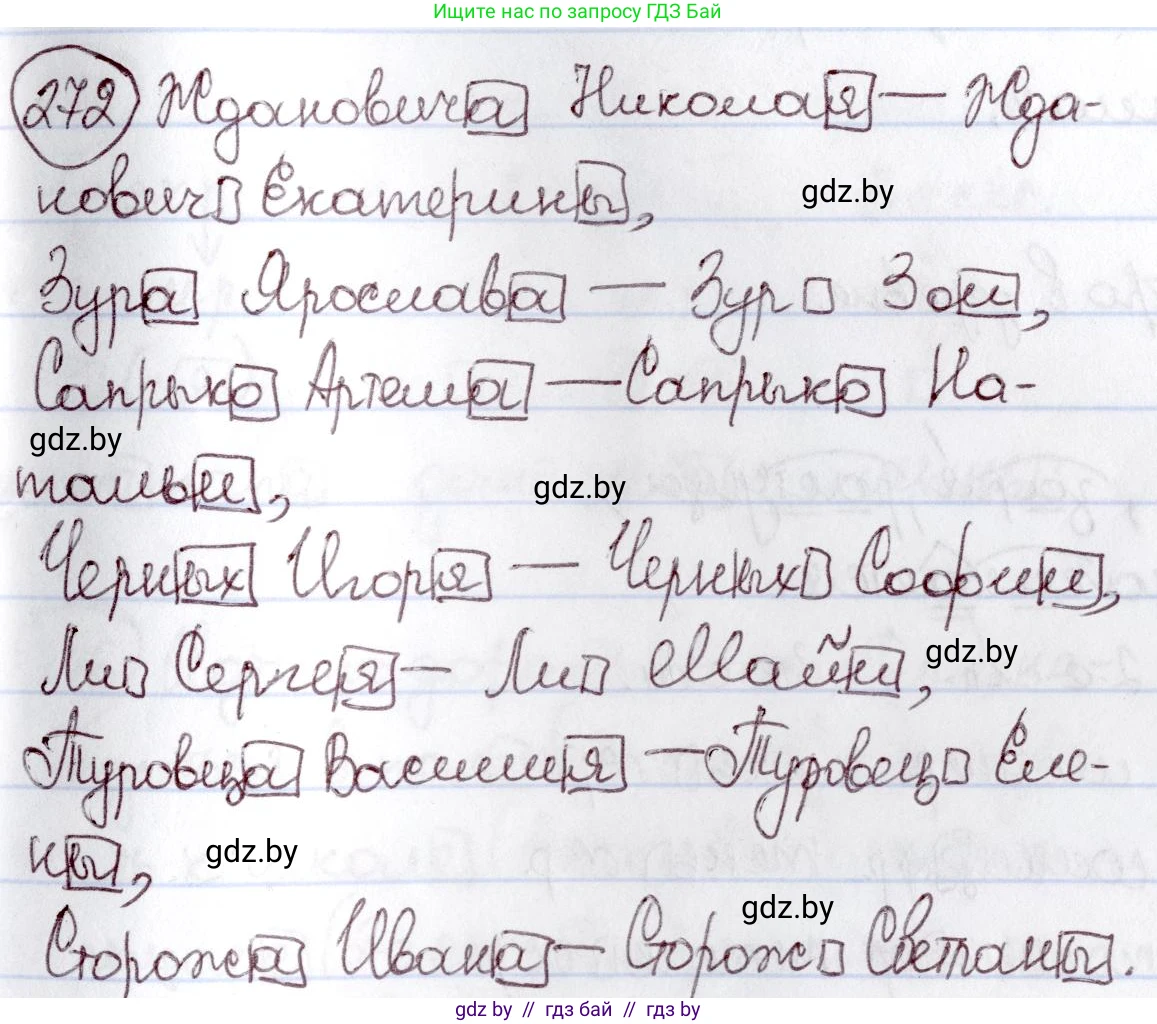 Ищите нас по запросу ГДЗ Бай
272 Ждановича Николая — Жда-
нович Екатерины,
gdz.by
Зура Ярослава — Зур Зои,
Сапрыко Артема — Сапрыко На-
gdz.by
тальи,
gdz.by
Черных Игоря — Черных Софии,
Ли Сергея — Ли Майи,
gdz.by
Туровца Василия — Туровец Еле-
ны,
gdz.by
gdz.by
Сторожа Ивана — Сторож Светланы.
gdz.by // гдз бай // гдз by